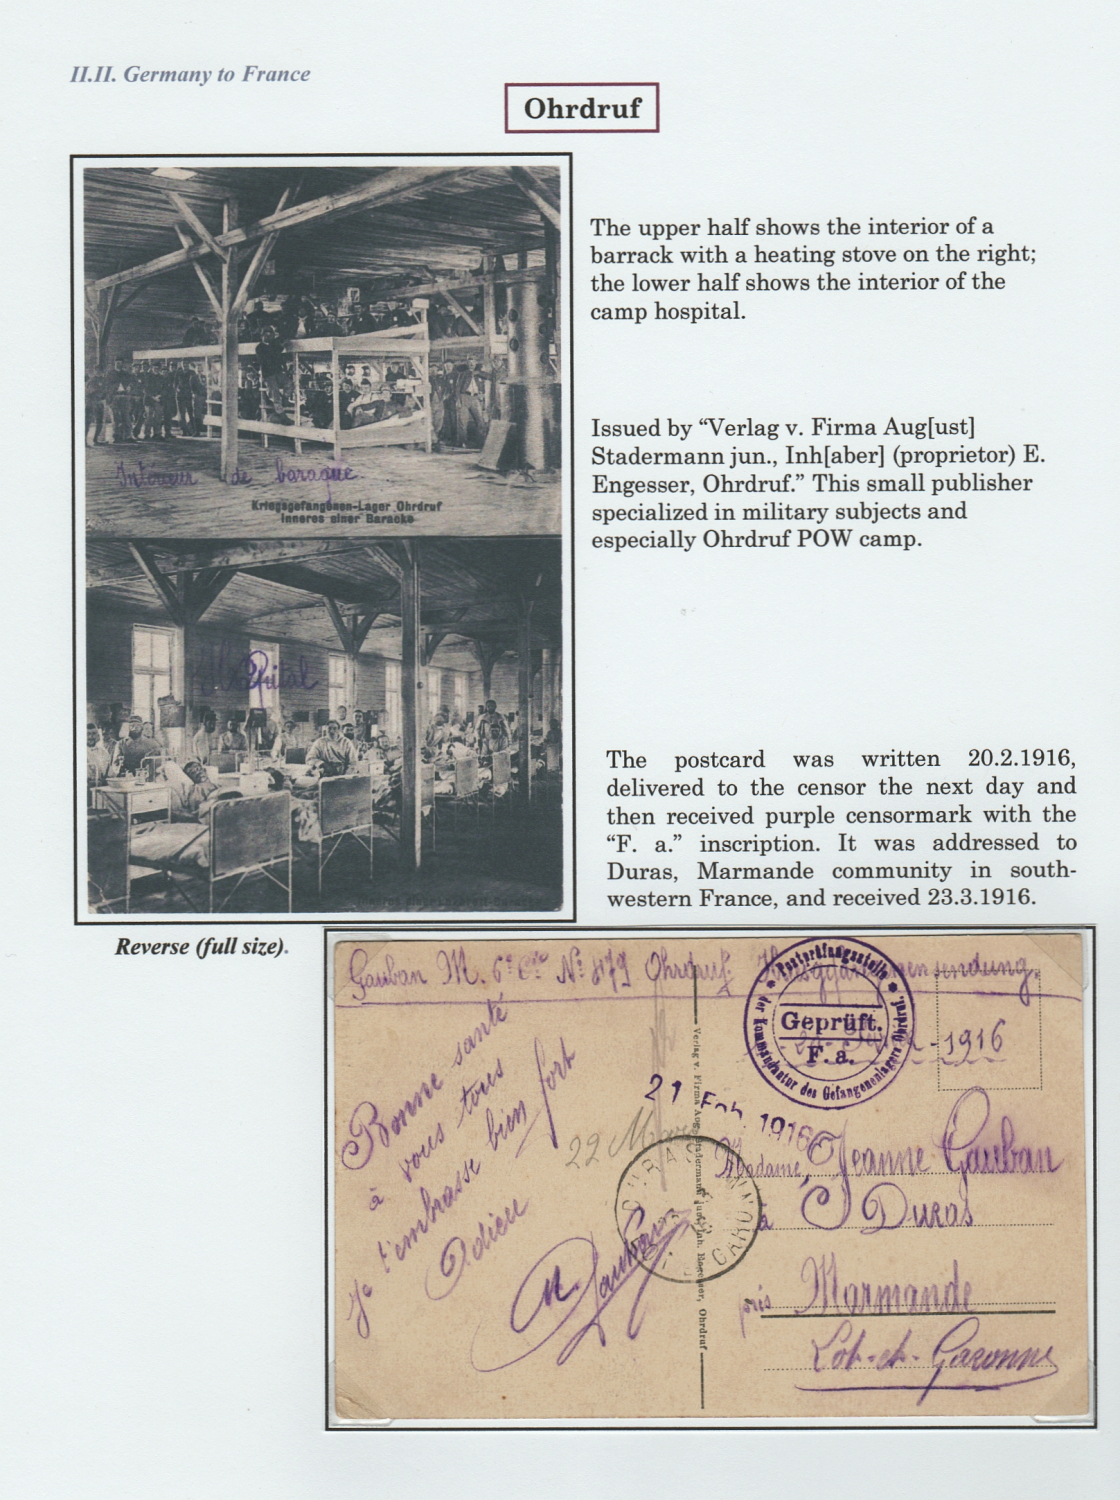 II.II. Germany to France
Ohrdruf
The upper half shows the interior of a
barrack with a heating stove on the right;
the lower half shows the interior of the
camp hospital.
Issued by “Verlag v. Firma Aug[ust]
Stadermann jun., Inh[aber] (proprietor) E.
Engesser, Ohrdruf.” This small publisher
specialized in military subjects and
especially Ohrdruf POW camp.
Interieur de baraque
Kriegsgefangenen-Lager Ohrdruf
Inneres einer Baracke
The postcard was written 20.2.1916,
delivered to the censor the next day and
then received purple censormark with the
“F. a.” inscription. It was addressed to
Duras, Marmande community in south-
western France, and received 23.3.1916.
Reverse (full size).
Gauban M. 6e Cie No 879 Ohrdruf. Kriegsgefangenensendung.
Postprüfungsstelle
der Kommandantur des Gefangenenlagers Ohrdruf.
Geprüft.
F. a.
1916
21 Feb. 1916
22 Mars
Bonne santé
à vous tous
Je t'embrasse bien fort
Adieu
M. Gauban
DURAS
Verlag v. Firma Aug. Stadermann jun., Inh. E. Engesser, Ohrdruf
Madame, Jeanne Gauban
à Duras
près Marmande
Lot-et-Garonne